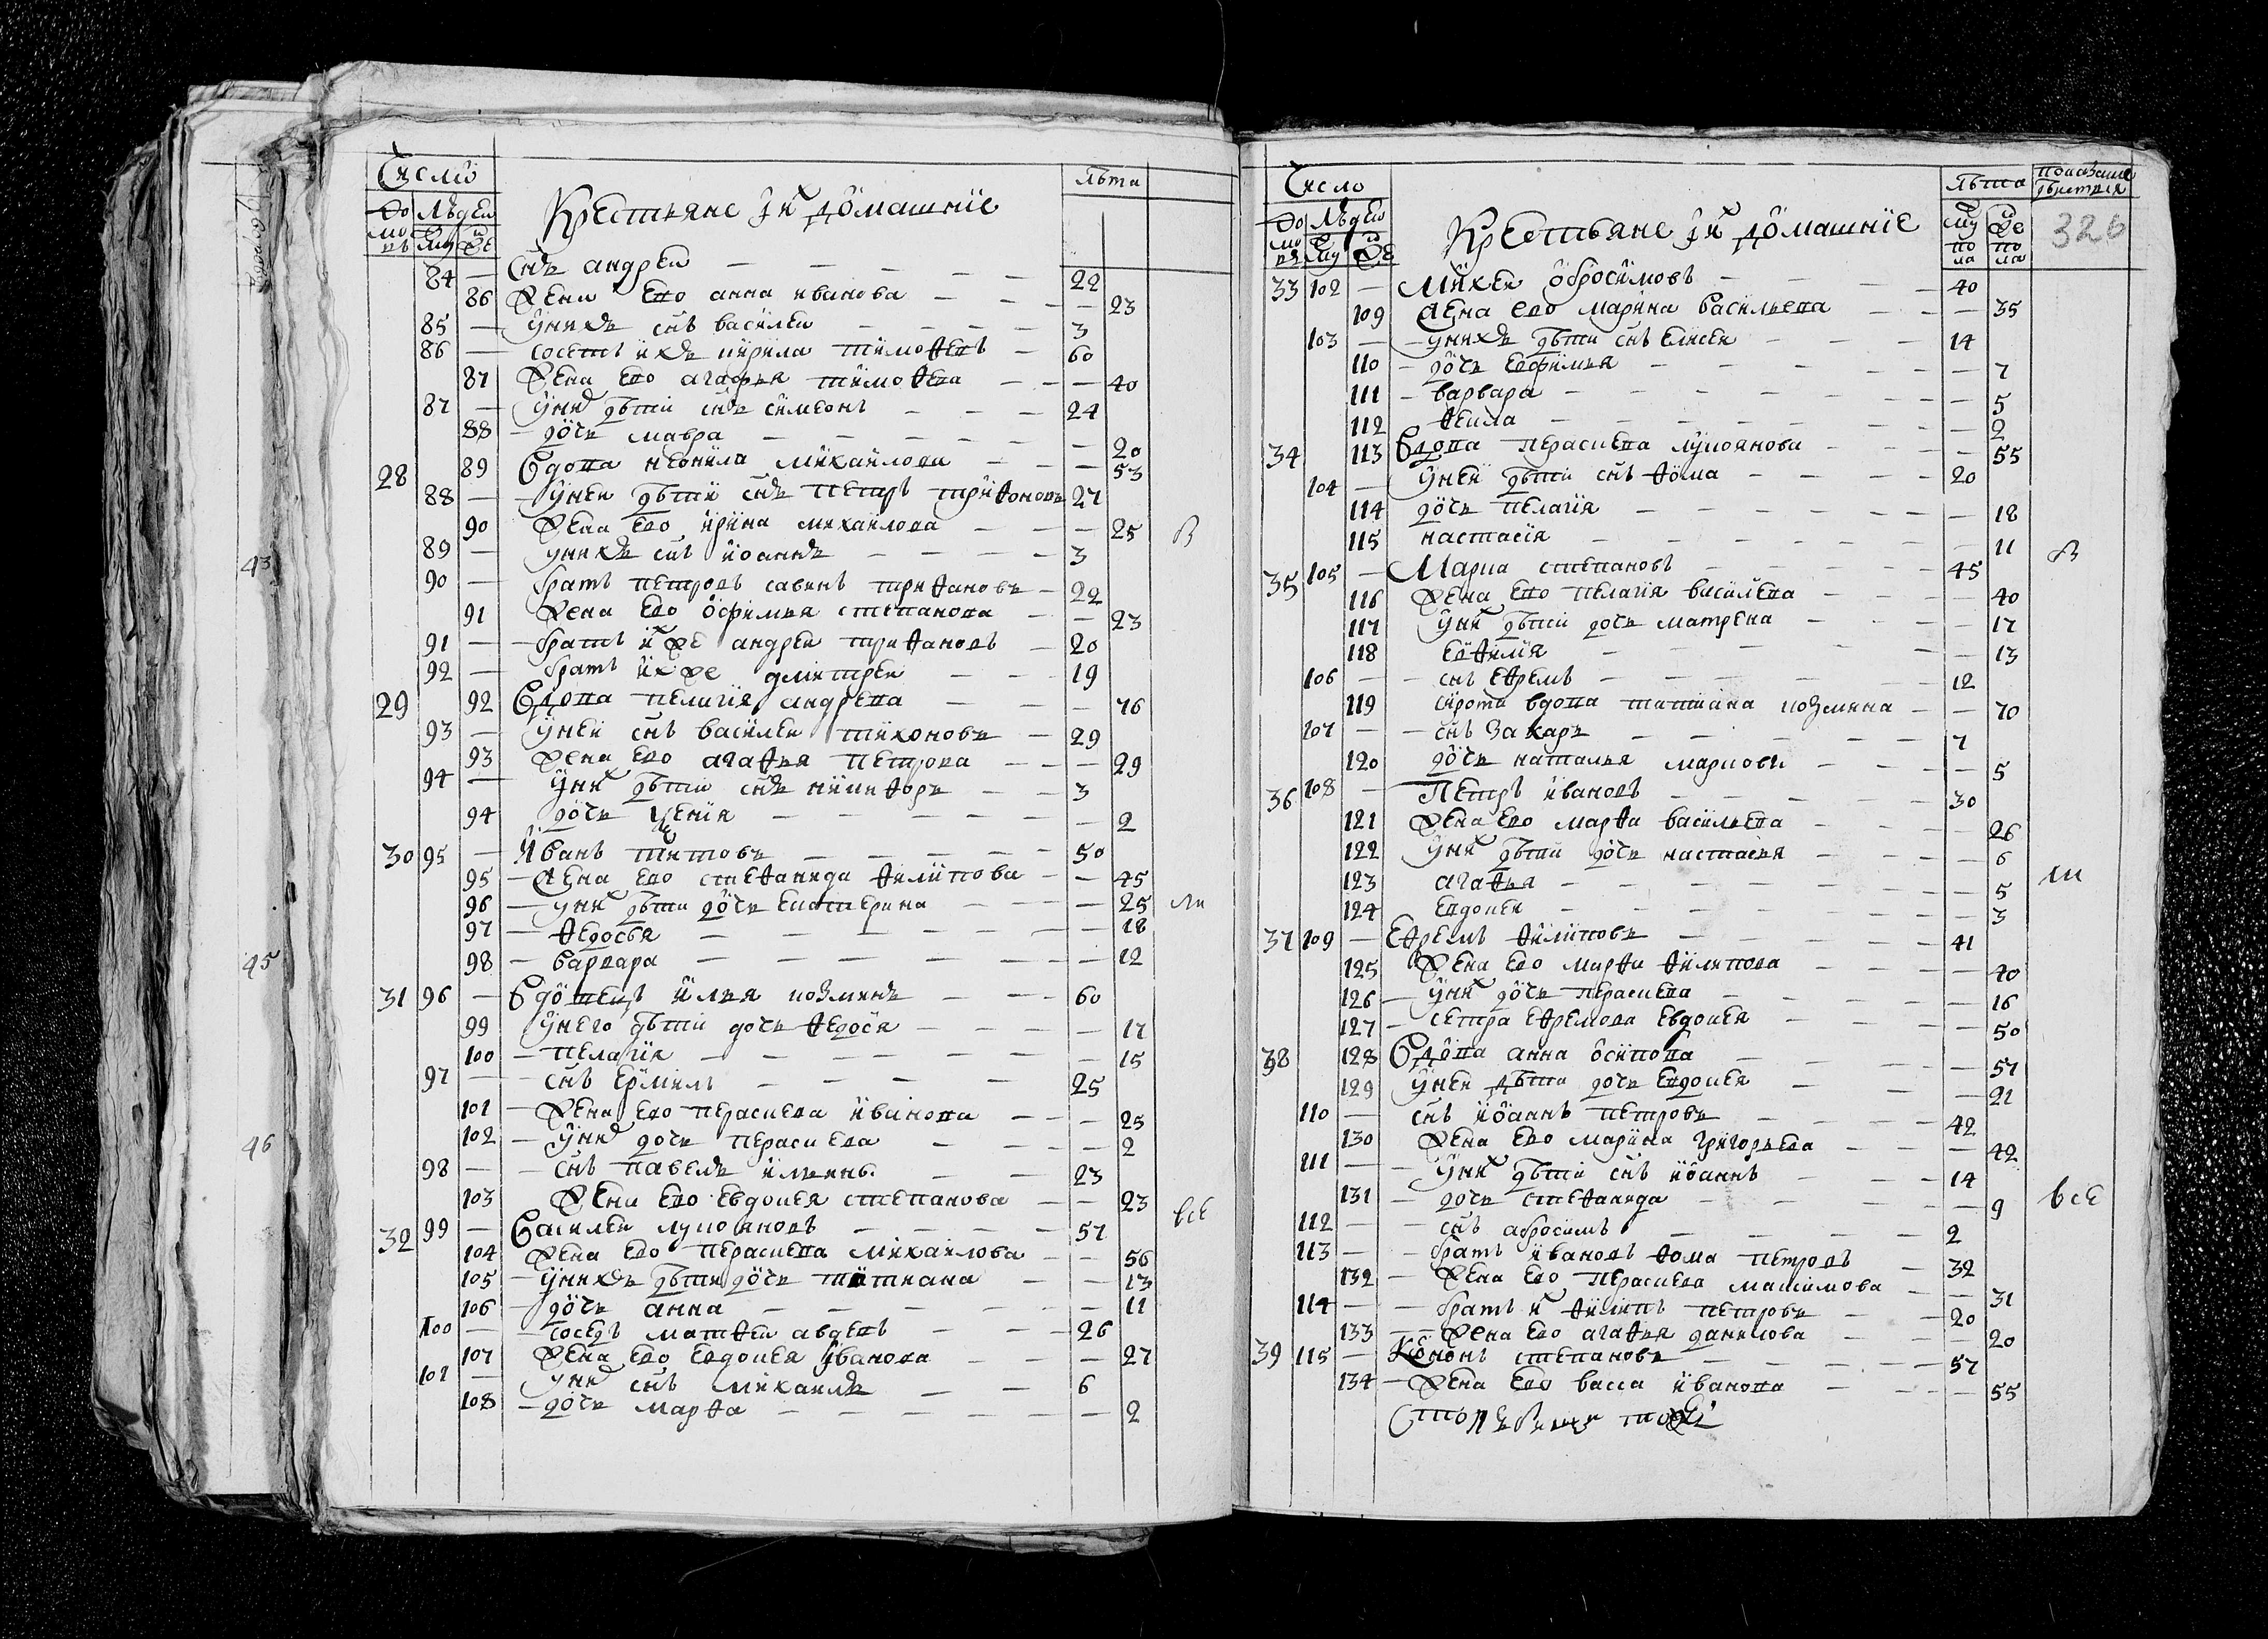 Число
До мо въ
Людей
Му
Же
Крестьяне Их домашние
лѣта
84 — Снъ андреи — 22
86 Жена ево анна иванова — 23
85 — Уних снъ василеи — 3
86 — сосетъ их кирила тимофеевъ — 60
87 Жена ево агафья тимофеева — 40
87 — Уних дѣти снъ симеонъ — 24
88 — дочь мавра — 20
28 89 Вдова неонила михаилова — 53
88 — Унеи дѣти снъ петръ трифоновъ 27
90 Жена ево ирина михаилова — 25 в
89 — уних снъ иоаннъ — 3
90 — братъ петровъ савинъ трифановъ — 22
91 Жена ево офимья степанова — 23
91 — братъ их же андреи трифановъ — 20
92 — братъ их же дмитреи — 19
29 92 Вдова пелагия андреева — 76
93 — Унеи снъ василеи тихоновъ — 29
93 Жена ево агафья петрова — 29
94 — Уних дѣти снъ никифоръ — 3
94 дочь ксения — 2
30 95 — Иванъ титовъ — 50
95 — Жена ево стефанида филипова — 45
96 — уних дѣти дочь екатерина — 25 ли
97 — федосья — 18
98 — варвара — 12
31 96 — Вдовецъ илья козминъ — 60
99 Унего дѣти дочь федосия — 17
100 — пелагия — 15
97 — снъ ермилъ — 25
101 — Жена ево параскева иванова — 25
102 — Уних дочь параскева — 2
98 — снъ павелъ ильинъ — 23
103 Жена ево евдокея степанова — 23 все
32 99 — Василеи лукояновъ — 57
104 Жена ево параскева михаилова — 56
105 — Уних дѣти дочь татиана — 13
106 — дочь анна — 11
100 — соседъ матфеи авдеевъ — 26
107 Жена ево евдокея иванова — 27
101 — Уних снъ михаилъ — 6
108 — дочь марфа — 2
43
45
46
Число
До мо въ
Людей
Му
Же
Крестьяне Их домашние
лѣта
Му по ла
Же по ла
326
33 102 — Михеи обросимовъ — 40
109 Жена ево марина васильева — 35
103 — Уних дѣти снъ елисеи — 14
110 — дочь евфимья — 7
111 — варвара — 5
112 — фекла — 2
34 113 Вдова параскева лукоянова — 55
104 — Унеи дѣти снъ фома — 20
114 дочь пелагия — 18
115 настасия — 11 в
35 105 — Марка степановъ — 45
116 Жена ево пелагия василева — 40
117 Уних дѣти дочь матрена — 17
118 евфимия — 13
106 — снъ ефремъ — 12
119 сирота вдова татиана козмина — 70
107 — снъ захаръ — 7
120 дочь наталья маркова — 5
36 108 — Петръ ивановъ — 30
121 Жена ево марфа васильева — 26
122 Уних дѣти дочь настасья — 6
123 агафья — 5 ли
124 евдокея — 3
37 109 — Ефремъ филиповъ — 41
125 Жена ево марфа филипова — 40
126 — Уних дочь параскева — 16
127 — сестра ефремова евдокея — 50
38 128 Вдова анна осипова — 57
129 Унеи дѣти дочь евдокея — 21
110 — снъ иоаннъ петровъ — 42
130 Жена ево марина григорьева — 42
111 — Уних дѣти снъ иоаннъ — 14
131 — дочь стефанида — 9 все
112 — снъ абросимъ — 2
113 — братъ ивановъ фома петровъ — 32
132 — Жена ево параскева максимова — 31
114 — братъ их филипъ петровъ — 20
133 — Жена ево агафья данилова — 20
39 115 — Кононъ степановъ — 57
134 — Жена ево васса иванова — 55